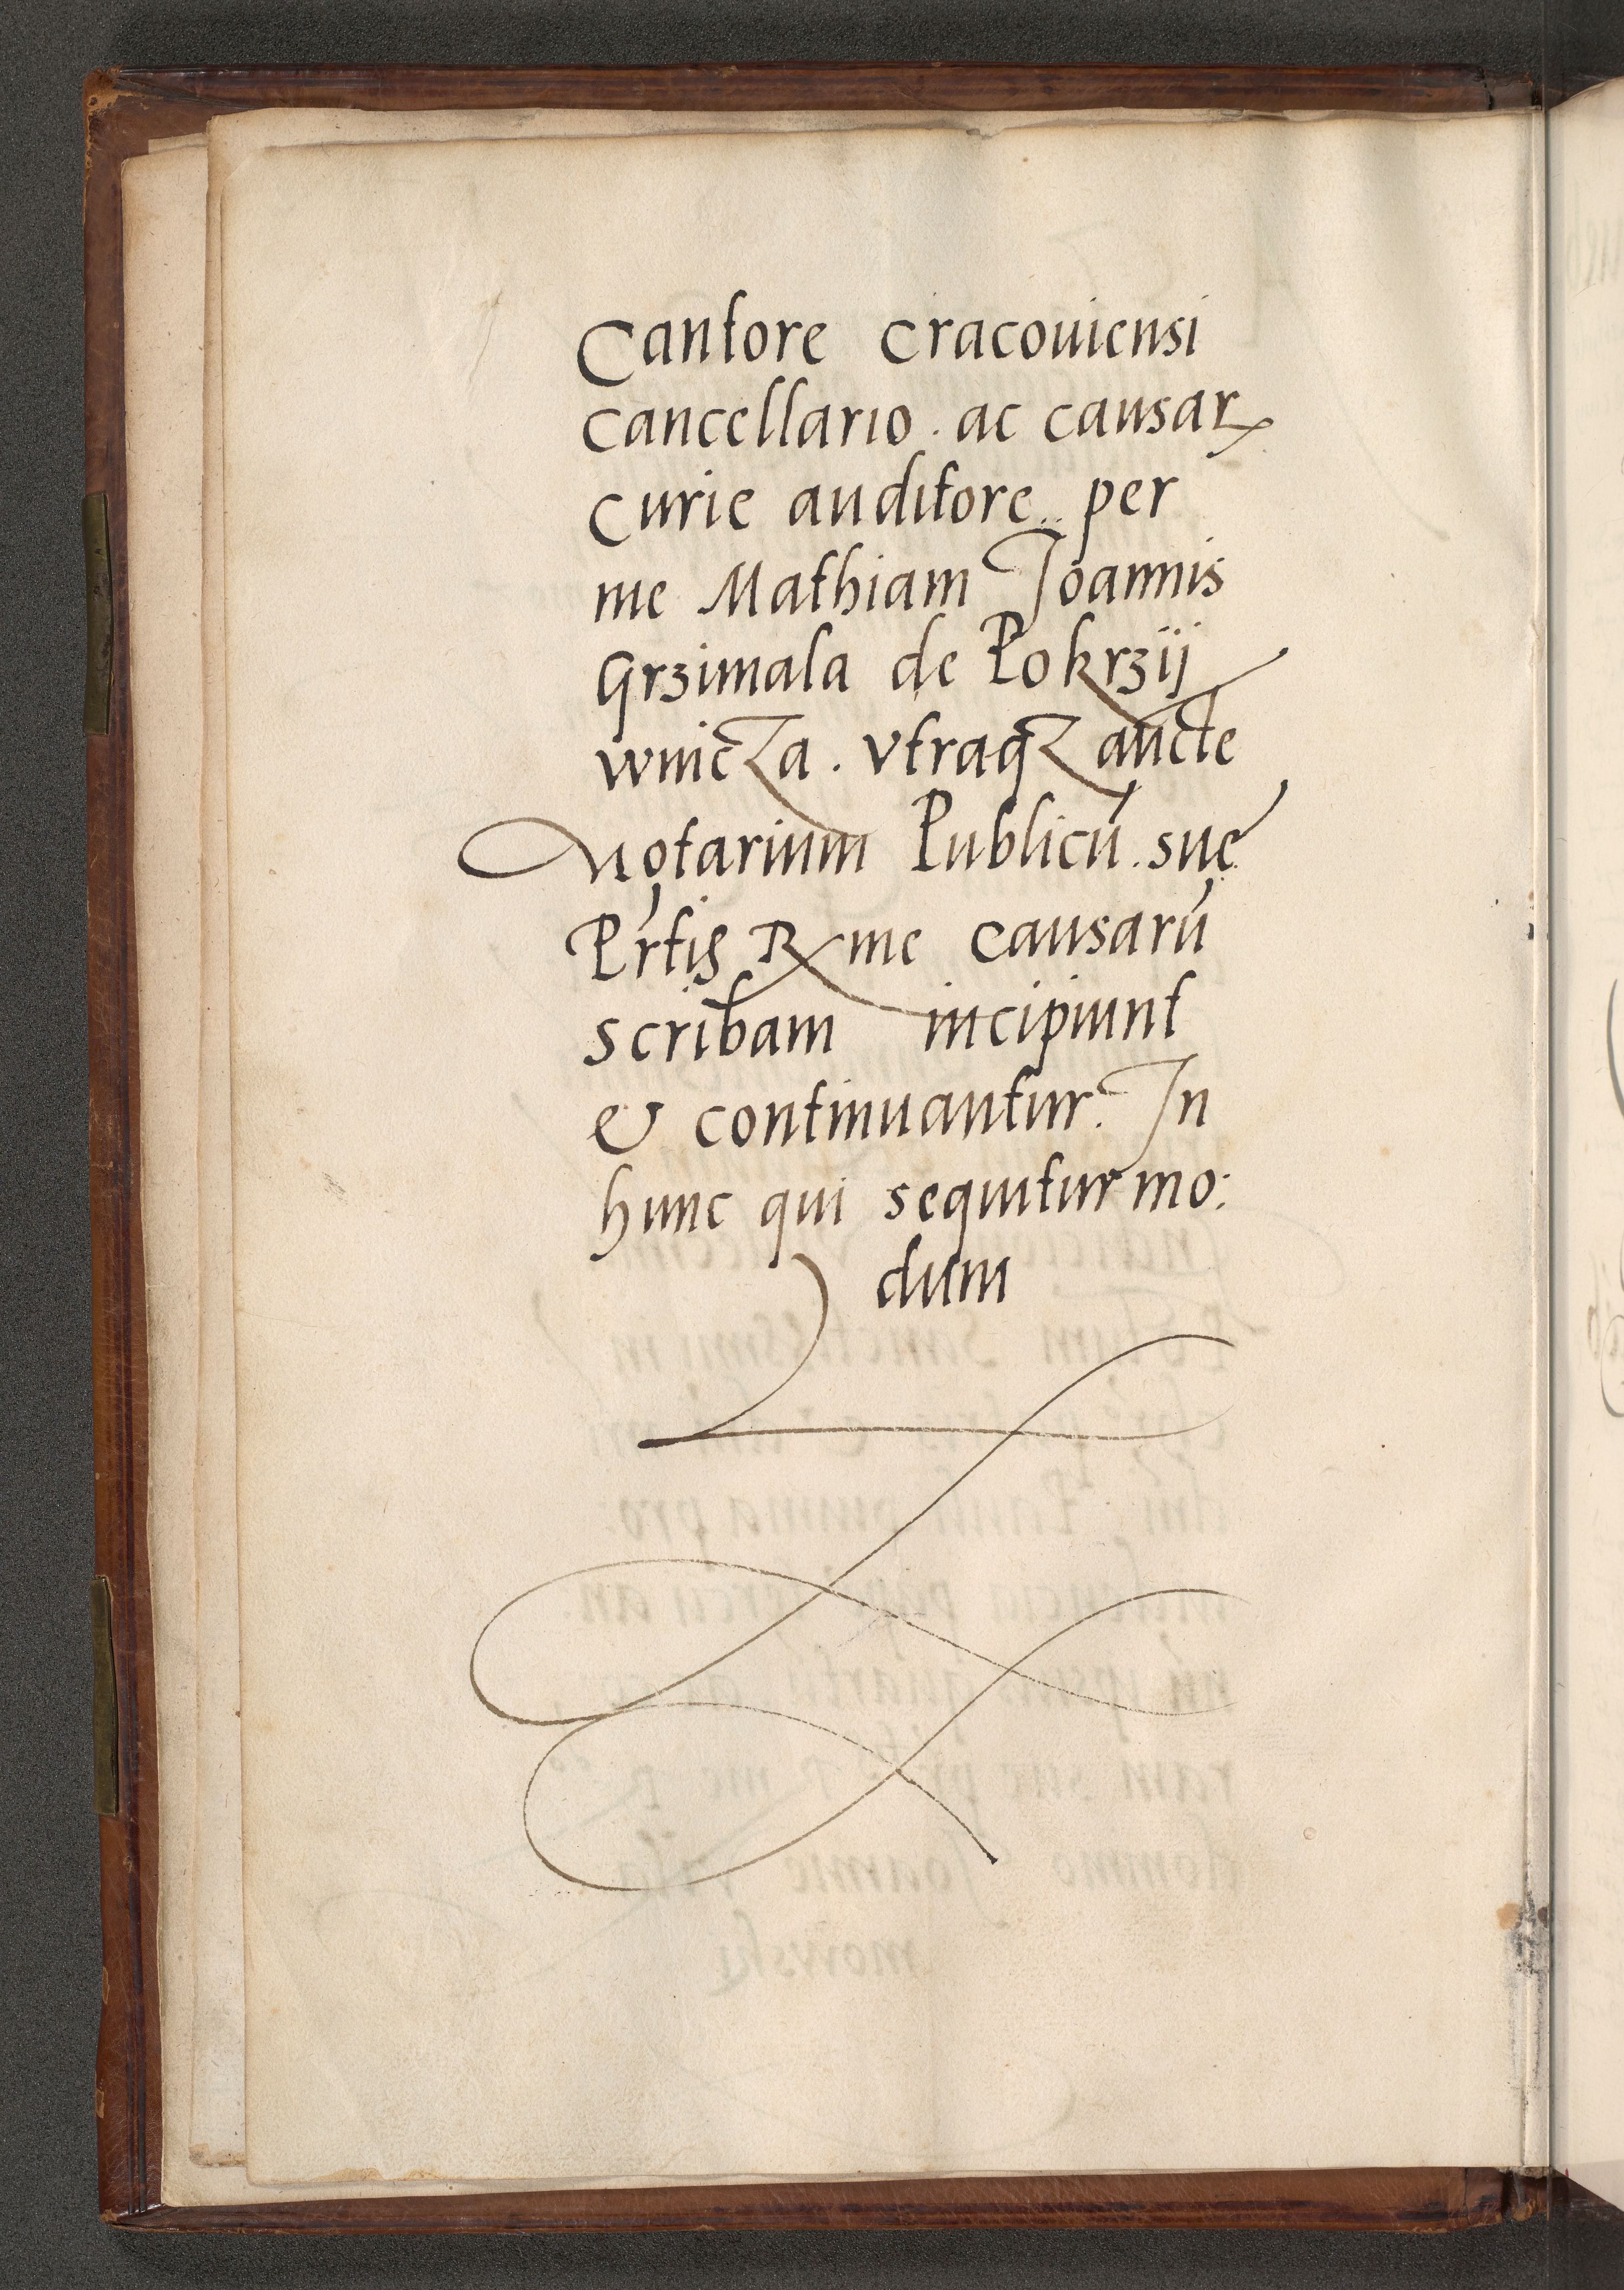 Cantore Cracouiensi
cancellario. ac causarꝝ
Curie auditore.. per
me Mathiam Joannis
Grzimala de Pokrzij
wnicza. vtraqꝫ aucte
Notarium Publicū. sue
Prtis R me causarū
scribam incipiunt
& continuantur. In
hunc qui sequitur mo:
dum